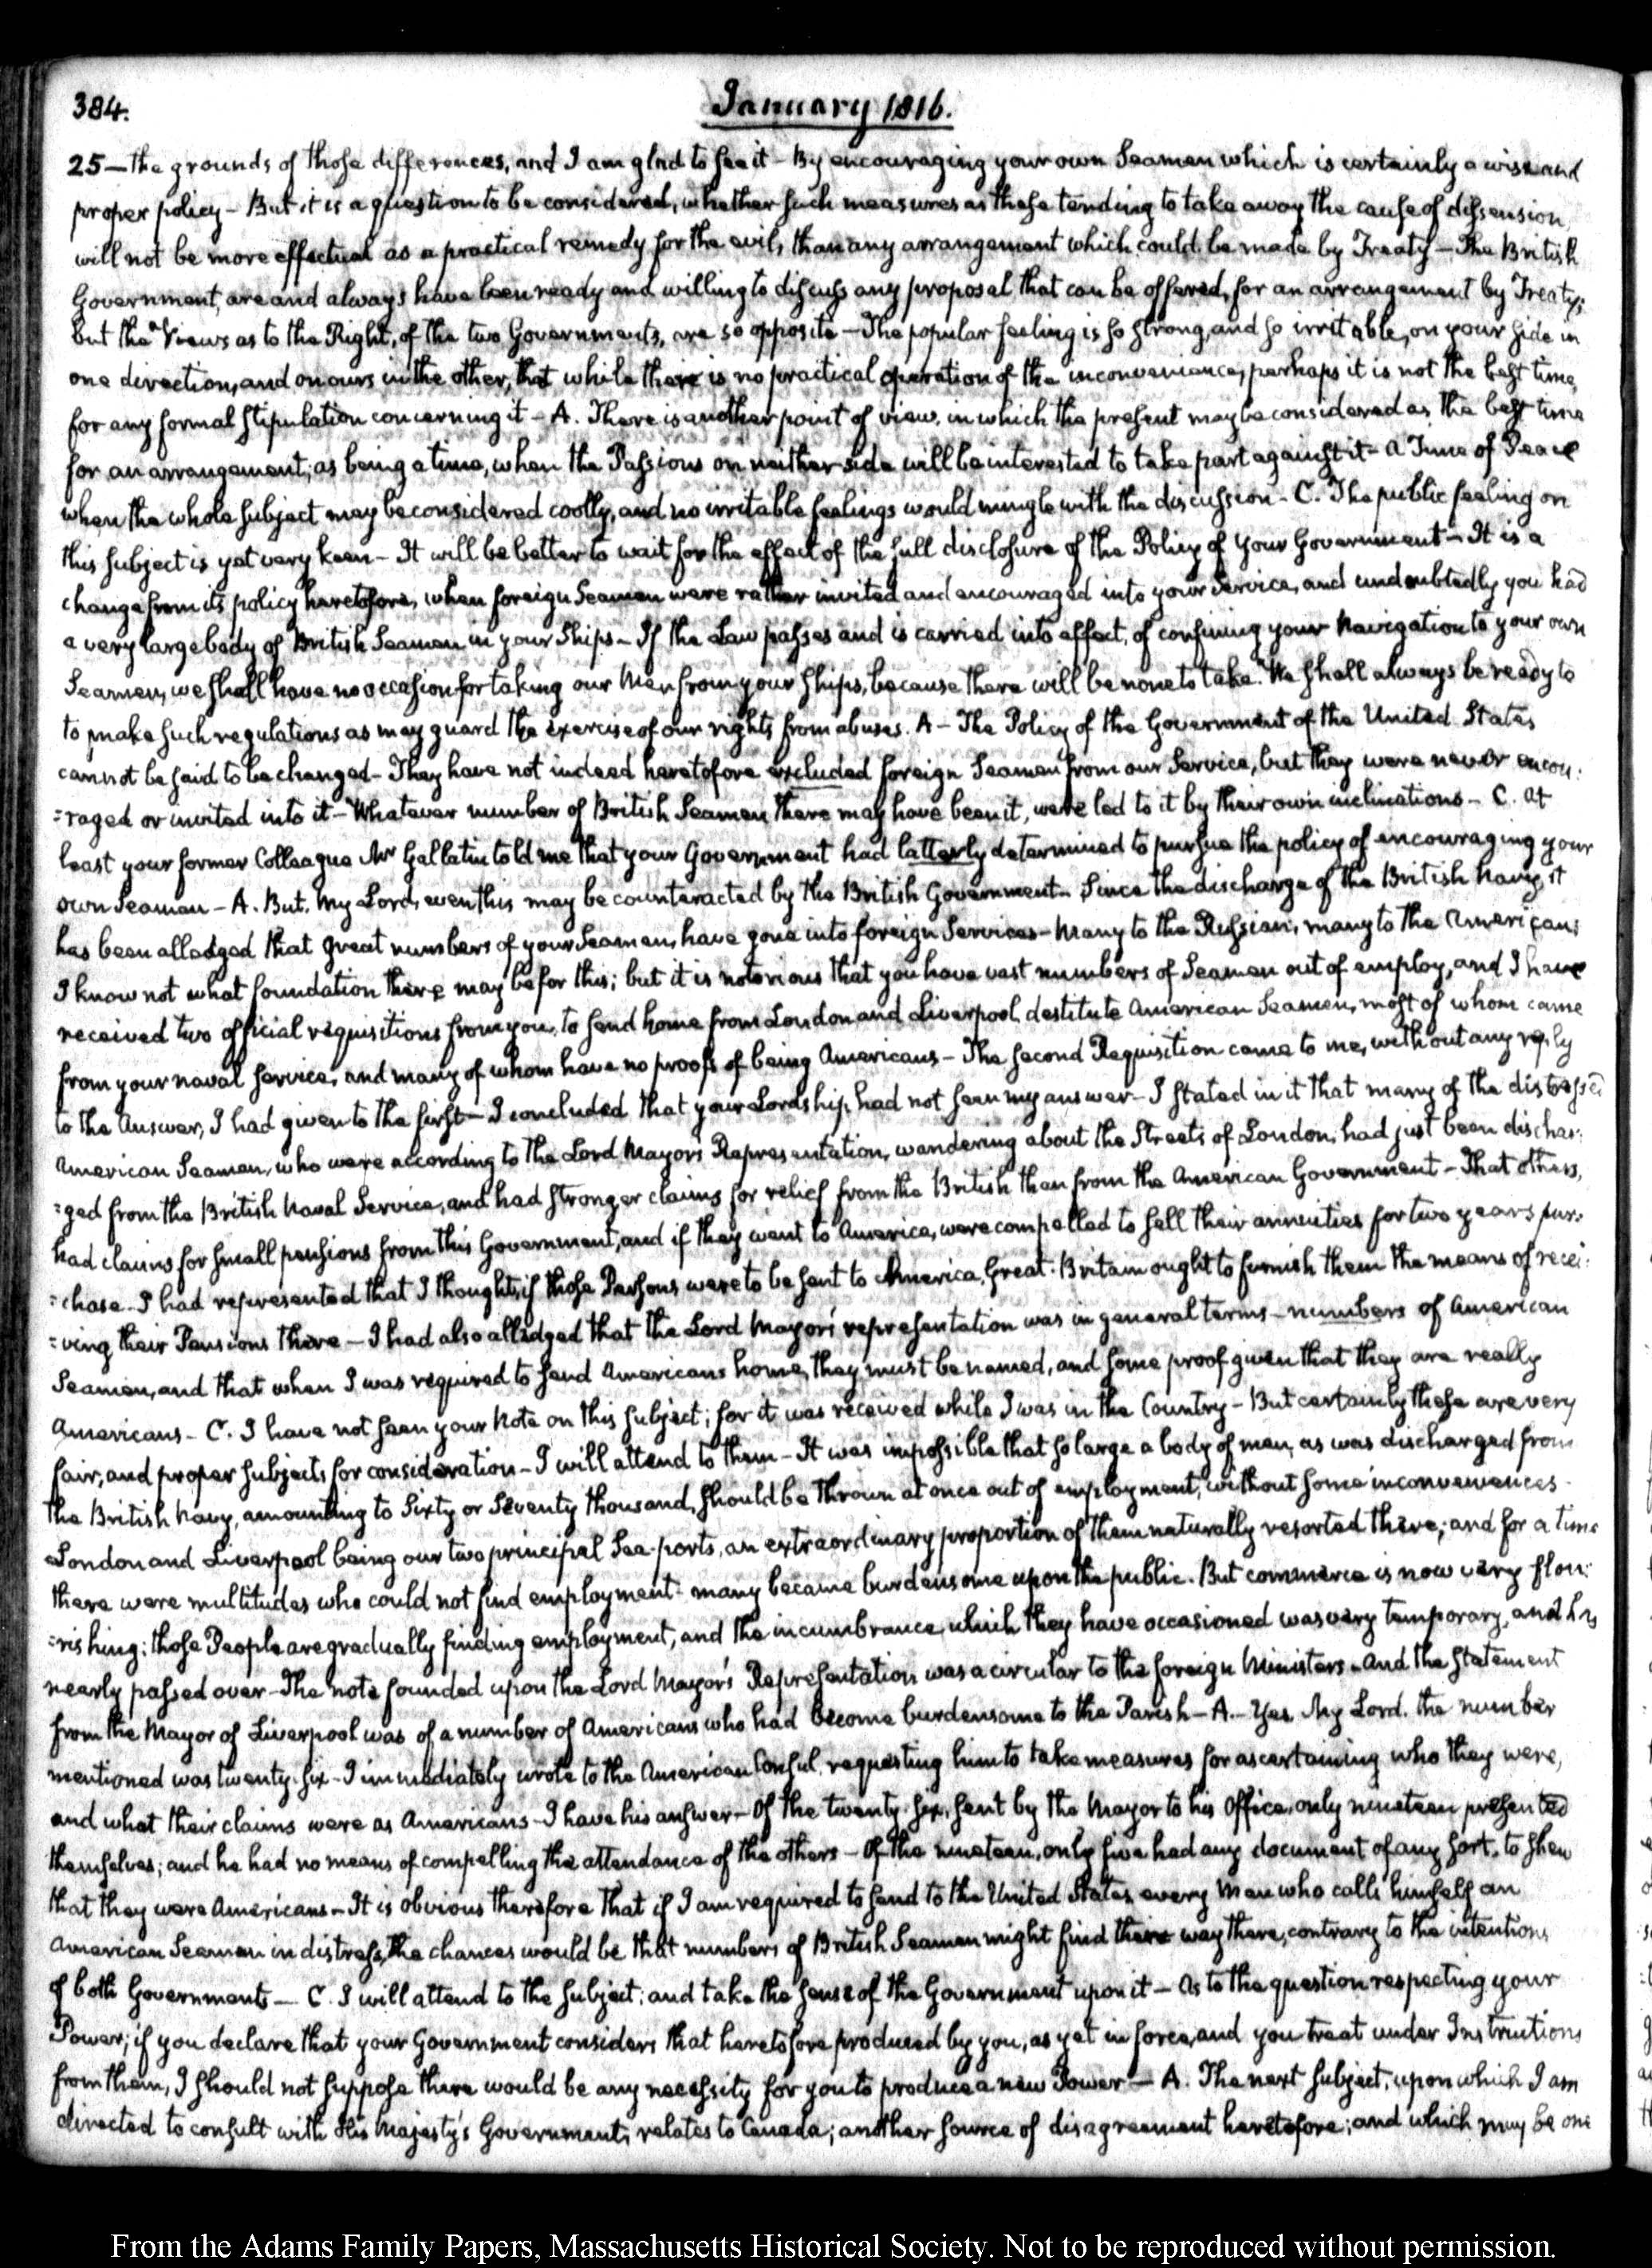 384.
January 1816.
25 — the grounds of those differences, and I am glad to see it - By encouraging your own Seamen which is certainly a wise and
proper policy - But it is a question to be considered, whether such measures as these tending to take away the cause of dissension,
will not be more effectual as a practical remedy for the evil, than any arrangement which could be made by Treaty - The British
Government, are and always have been ready and willing to discuss any proposal that can be offered, for an arrangement by Treaty;
but the Views as to the Right, of the two Governments, are so opposite - The popular feeling is so strong, and so irritable, on your side in
one direction, and on ours in the other, that while there is no practical operation of the inconvenience, perhaps it is not the best time,
for any formal stipulation concerning it - A. There is another point of view, in which the present may be considered as the best time
for an arrangement; as being a time, when the Passions on neither side will be interested to take part against it - a Time of Peace
when the whole subject may be considered coolly, and no irritable feelings would mingle with the discussion - C. The public feeling on
this subject is yet very keen - It will be better to wait for the effect of the full disclosure of the Policy of your Government - It is a
change from its policy heretofore, when foreign Seamen were rather invited and encouraged into your service, and undoubtedly you had
a very large body of British Seamen in your Ships - If the Law passes and is carried into effect, of confining your Navigation to your own
Seamen, we shall have no occasion for taking our Men from your ships, because there will be none to take. We shall always be ready to
to make such regulations as may guard the exercise of our rights from abuses. A - The Policy of the Government of the United States
cannot be said to be changed - They have not indeed heretofore excluded foreign Seamen from our Service, but they were never encou:
:raged or invited into it - Whatever number of British Seamen there may have been it, were led to it by their own inclinations - C. At
least your former Colleague Mr Gallatin told me that your Government had latterly determined to pursue the policy of encouraging your
own Seamen - A. But, my Lord, even this may be counteracted by the British Government - Since the discharge of the British Navy, it
has been alledged that great numbers of your Seamen, have gone into foreign Services - Many to the Russian; many to the American;
I know not what foundation there may be for this; but it is notorious that you have vast numbers of Seamen out of employ, and I have
received two official requisitions from you, to send home from London and Liverpool, destitute American Seamen, most of whom came
from your naval service, and many of whom have no proofs of being Americans - The second Requisition came to me, without any reply
to the Answer, I had given to the first - I concluded that your Lordship, had not seen my answer - I stated in it that many of the distressed
American Seamen, who were according to the Lord Mayor's Representation, wandering about the Streets of London, had just been dischar:
:ged from the British Naval Service, and had stronger claims for relief from the British than from the American Government - That others,
had claims for small pensions from this Government, and if they went to America, were compelled to sell their annuities for two years pur:
:chase - I had represented that I thought, if those Persons were to be sent to America, Great-Britain ought to furnish them the means of recei:
:ving their Pensions there - I had also alledged that the Lord Mayor's representation was in general terms - numbers of American
Seamen, and that when I was required to send Americans home, they must be named, and some proof given that they are really
Americans - C. I have not seen your Note on this subject; for it was received while I was in the Country - But certainly these are very
fair, and proper subjects for consideration - I will attend to them - It was impossible that so large a body of men, as was discharged from
the British Navy, amounting to Sixty or Seventy thousand, should be thrown at once out of employment, without some inconveniences -
London and Liverpool being our two principal Sea-ports, an extraordinary proportion of them naturally resorted there; and for a time
there were multitudes who could not find employment - many became burdensome upon the public. But commerce is now very flou:
:rishing: those People are gradually finding employment, and the incumbrance which they have occasioned was very temporary, and has
nearly passed over - The note founded upon the Lord Mayor's Representation was a circular to the foreign Ministers - And the statement
from the Mayor of Liverpool was of a number of Americans who had become burdensome to the Parish - A. - Yes, My Lord. the number
mentioned was twenty-six - I immediately wrote to the American Consul, requesting him to take measures for ascertaining who they were,
and what their claims were as Americans - I have his answer - Of the twenty-six, sent by the Mayor to his Office, only nineteen presented
themselves; and he had no means of compelling the attendance of the others - Of the nineteen, only five had any document of any sort, to shew
that they were Americans - It is obvious therefore that if I am required to send to the United States every Man who calls himself an
American Seaman in distress, the chances would be that numbers of British Seamen might find there way there, contrary to the intentions
of both Governments — C. I will attend to the subject; and take the sense of the Government upon it - As to the question respecting your
Power; if you declare that your Government considers that heretofore produced by you, as yet in force, and you treat under Instructions
from them, I should not suppose there would be any necessity for you to produce a new Power - A. The next subject, upon which I am
directed to consult with His Majesty's Government, relates to Canada; another source of disagreement heretofore; and which may be one
From the Adams Family Papers, Massachusetts Historical Society. Not to be reproduced without permission.